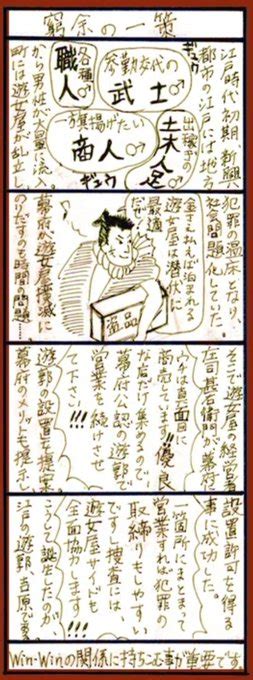 窮余の一策
江戸時代初期、新興
都市の江戸には地方
から男性が大量に流入。
町には遊女屋が乱立し、
ギュウ
出稼ぎの
土夫人足♂
参勤交代の
武士♂
一旗揚げたい
商人♂
各種
職人♂
ギュウ
犯罪の温床となり、
社会問題化していた。
金さえ払えば泊まれる
遊女屋は潜伏に
最適
だぜ
盗品
幕府が遊女屋撲滅に
のりだすのも時間の問題……
そこで遊女屋の経営者
庄司甚右衛門が幕府に
ウチは真面目に
商売しています!!優良
な店だけ集めるので、
幕府公認の遊郭で
営業を続けさせ
て下さい!!
遊郭の設置を提案。
幕府のメリットも提示し、
設置許可を得る
事に成功した。
一箇所にまとまって
営業すれば犯罪の
取締りもしやすい
ですし捜査には、
遊女屋サイドも
全面協力します!!
こうして誕生したのが、
江戸の遊郭、吉原である。
Win-Winの関係に持ちこむ事が重要です。